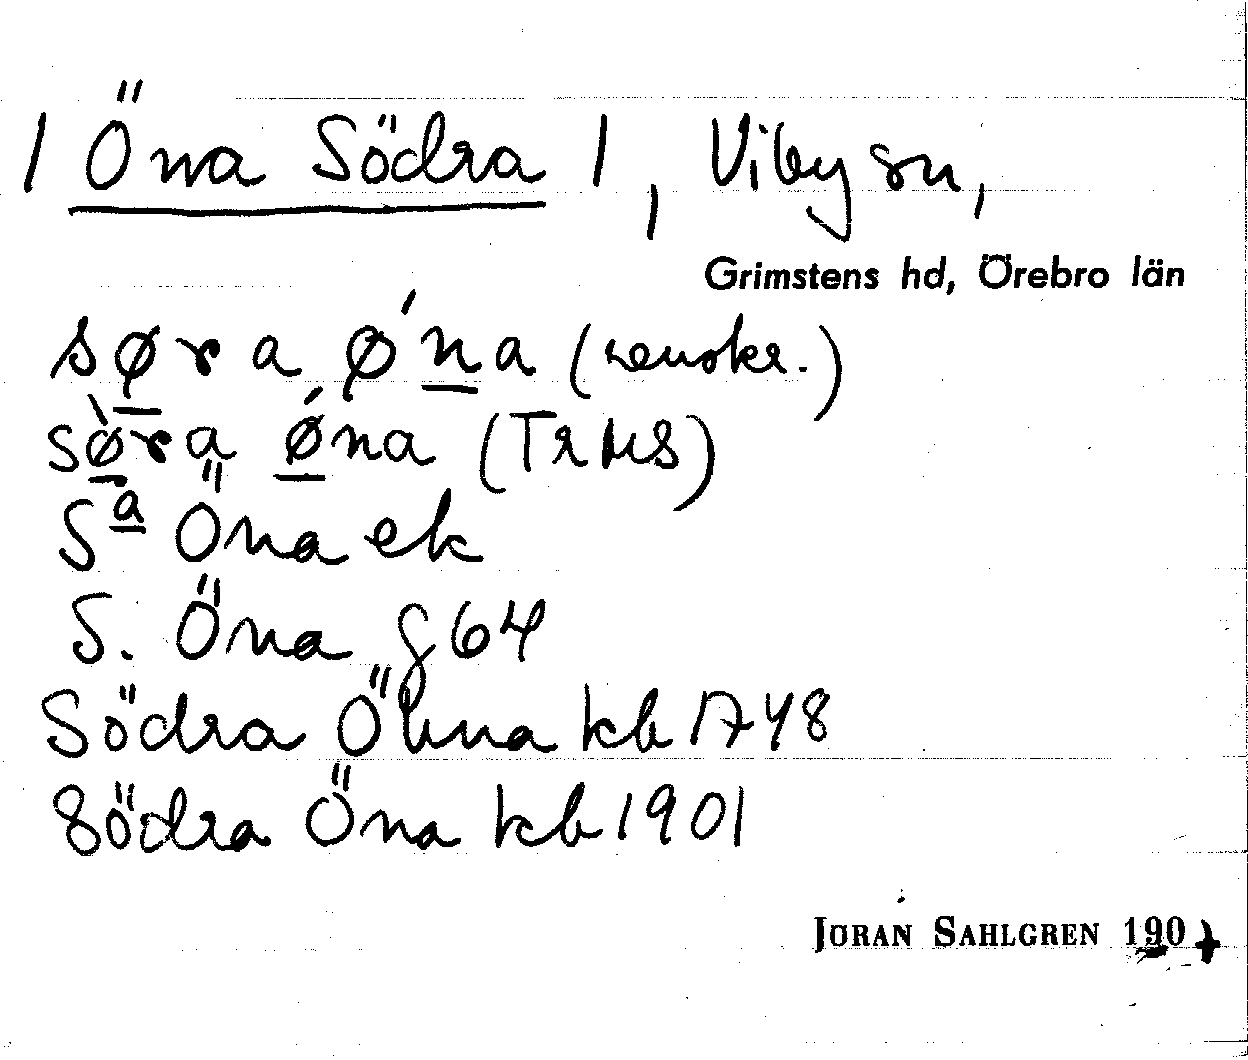 / Öna Södra /, Viby sn,
Grimstens hd, Örebro län
søra ǿna (renskr.)
sø̀ra ǿna (TrMS)
Sa Öna ek
S. Öna g 64
Södra Öhna kb 1748
Södra Öna kb 1901
JÖRAN SAHLGREN 190